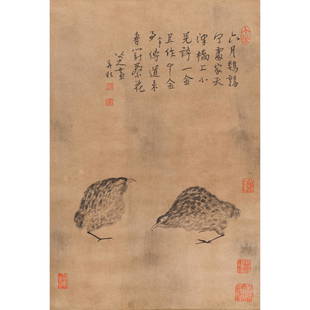 六月鵪鶉
何處家天
津橋上小
兒誇一金
且作十金
事傳道來
春鬥蔡花